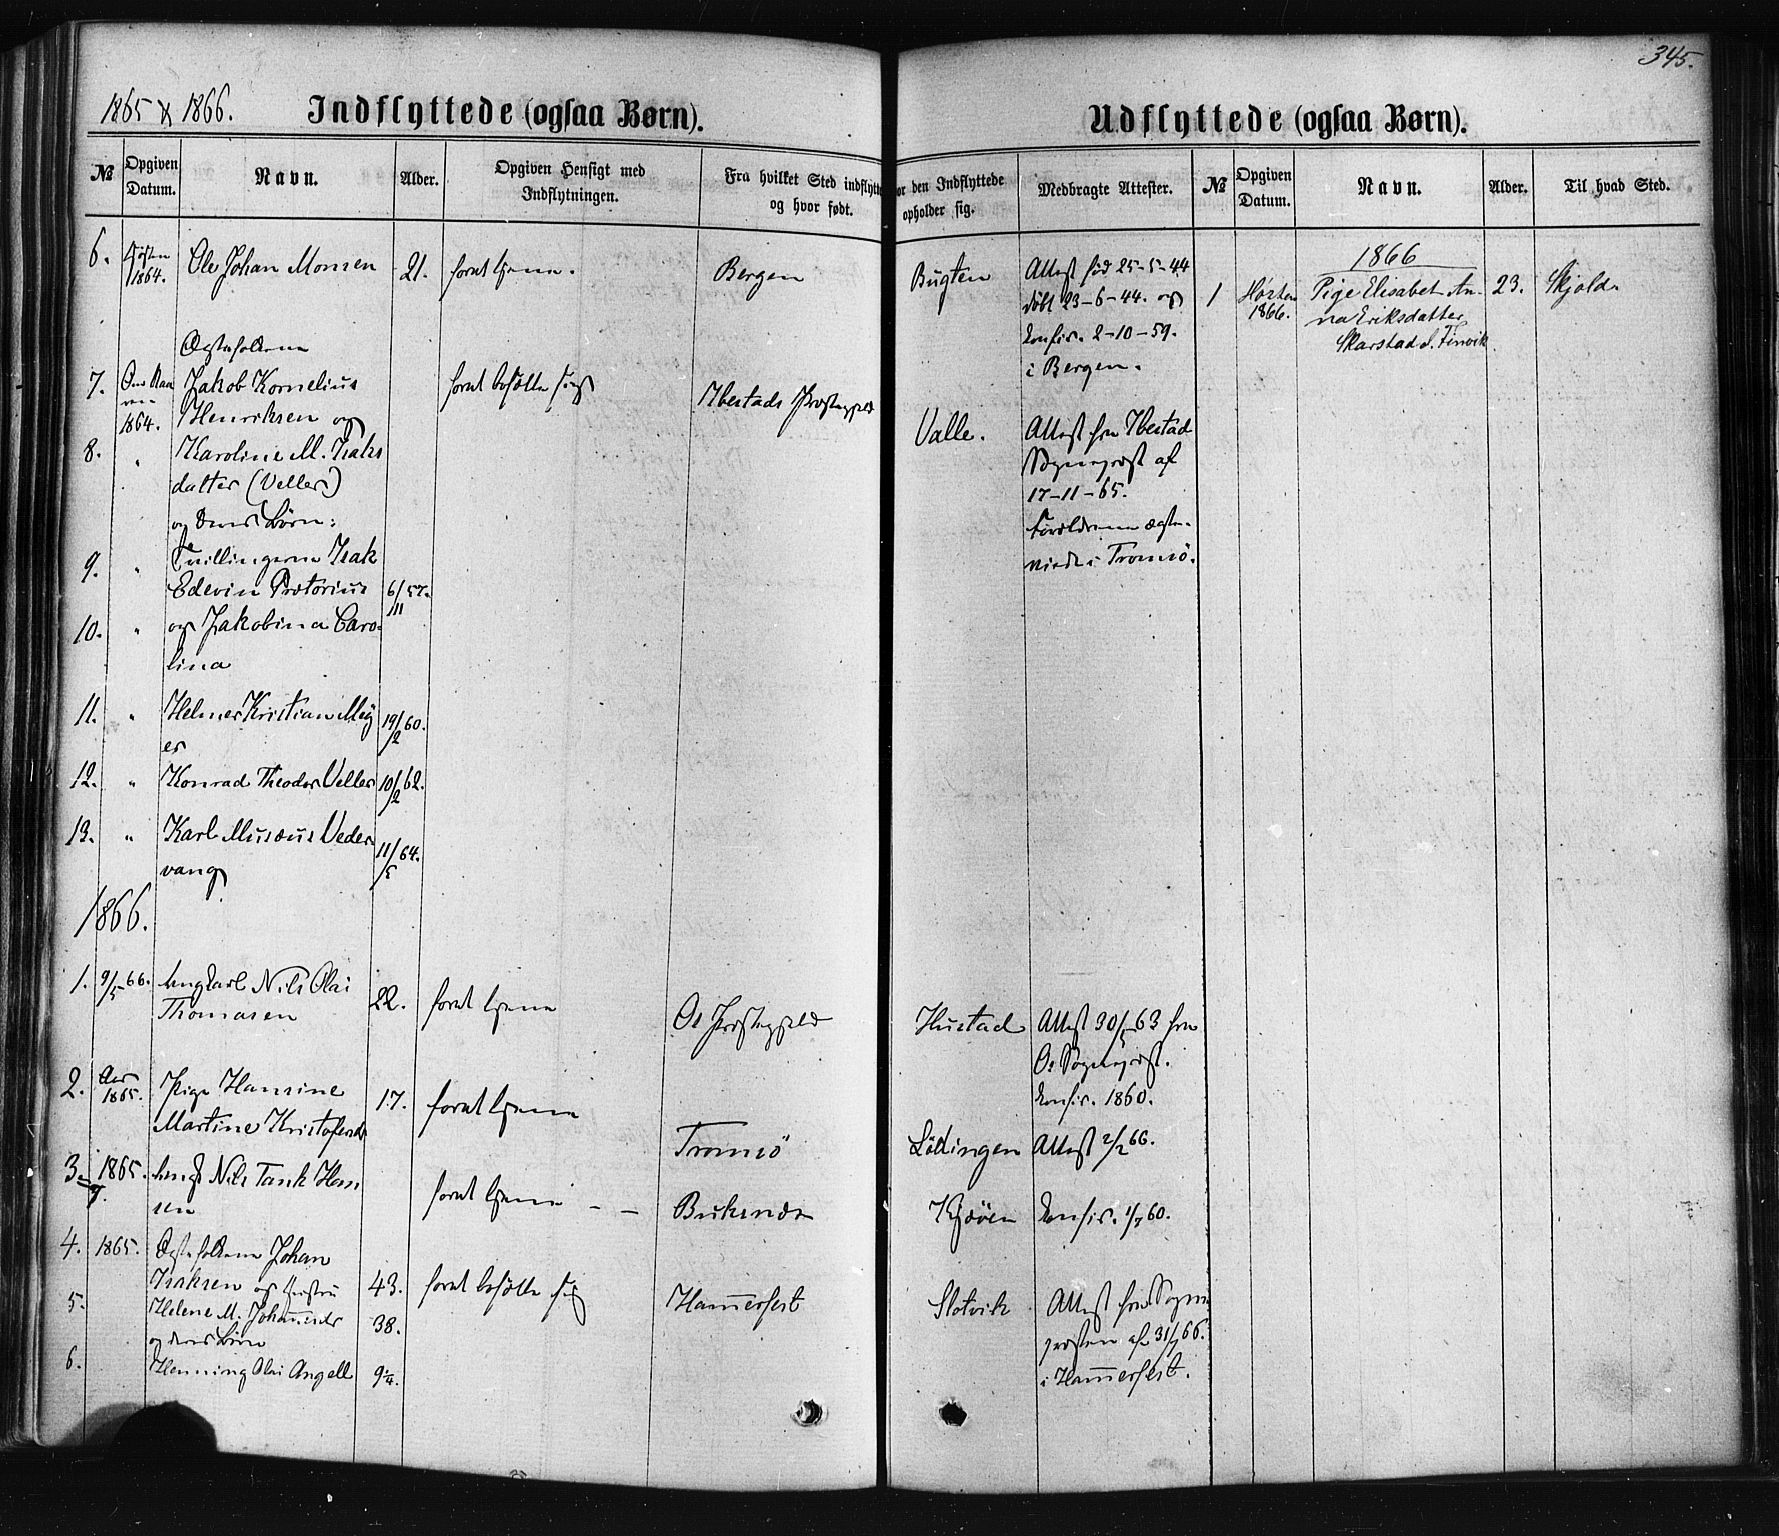 345.
1865 & 1866. Indflyttede (ogsaa Børn).
Udflyttede (ogsaa Børn).
№ Opgiven Datum. Navn. Alder. Opgiven Hensigt med Indflytningen. Fra hvilket Sted indflytte og hvor født.
or den Indflyttede opholder sig. Medbragte Attester. № Opgiven Datum. Navn. Alder. Til hvad Sted.
6. 1864. Ole Johan Monsen 21. forat tjene. Bergen Bugten Attest fød 25-5-44
døbt 23-6-44. og
konfir. 2-10-59.
i Bergen.
Ægtefolkene
7. 1864. Jakob Kornelius forat bosætte sig Ibestads Præstegjeld
Henriksen og
8. " Karoline M. Isaks
datter (Veller)
og deres Børn:
Valle. Attest fra Ibestad
Sognepræst af
17-11-65.
Forældrene ægte-
viede i Tromsö.
9. " Tvillingerne Isak
Edevin Prætorius 6/11 57.
10. " og Jakobina Caro-
lina
11. " Helmer Kristian Mey 19/2 60.
er
12. " Konrad Theodor Veller 10/2 62.
13. " Karl Musæus Veder 11/5 64.
vang
1866.
1. 9/5 66. Ungkarl Nils Olai
Thomasen 22. forat tjene Os Præstegjeld Hustad Attest 30/5 63 fra
Os Sognepræst.
konfir. 1860.
2. 1865. Pige Hansine
Martine Kristofersdr 17. forat tjene Tromsö Lödingen Attest 2/2 66.
3. 1865. Ungk Nils Tank Han
sen forat tjene - - Buksnæs Kjööen konfir. 1/7 60.
4. 1865. Ægtefolkene Johan
Isaksen og Hustru 43. forat bosætte sig Hammerfest Slotvik Attest fra Sogne
5. Helene M. Johannesdr 38. præsten af 31/7 66.
og deres Børn i Hammerfest.
6. Henning Olai Angell 9 1/4.
1866
1 Høsten 1866. Pige Elisabet An- 23. Skjold.
na Eriksdatter
Skarstad f. Finvik